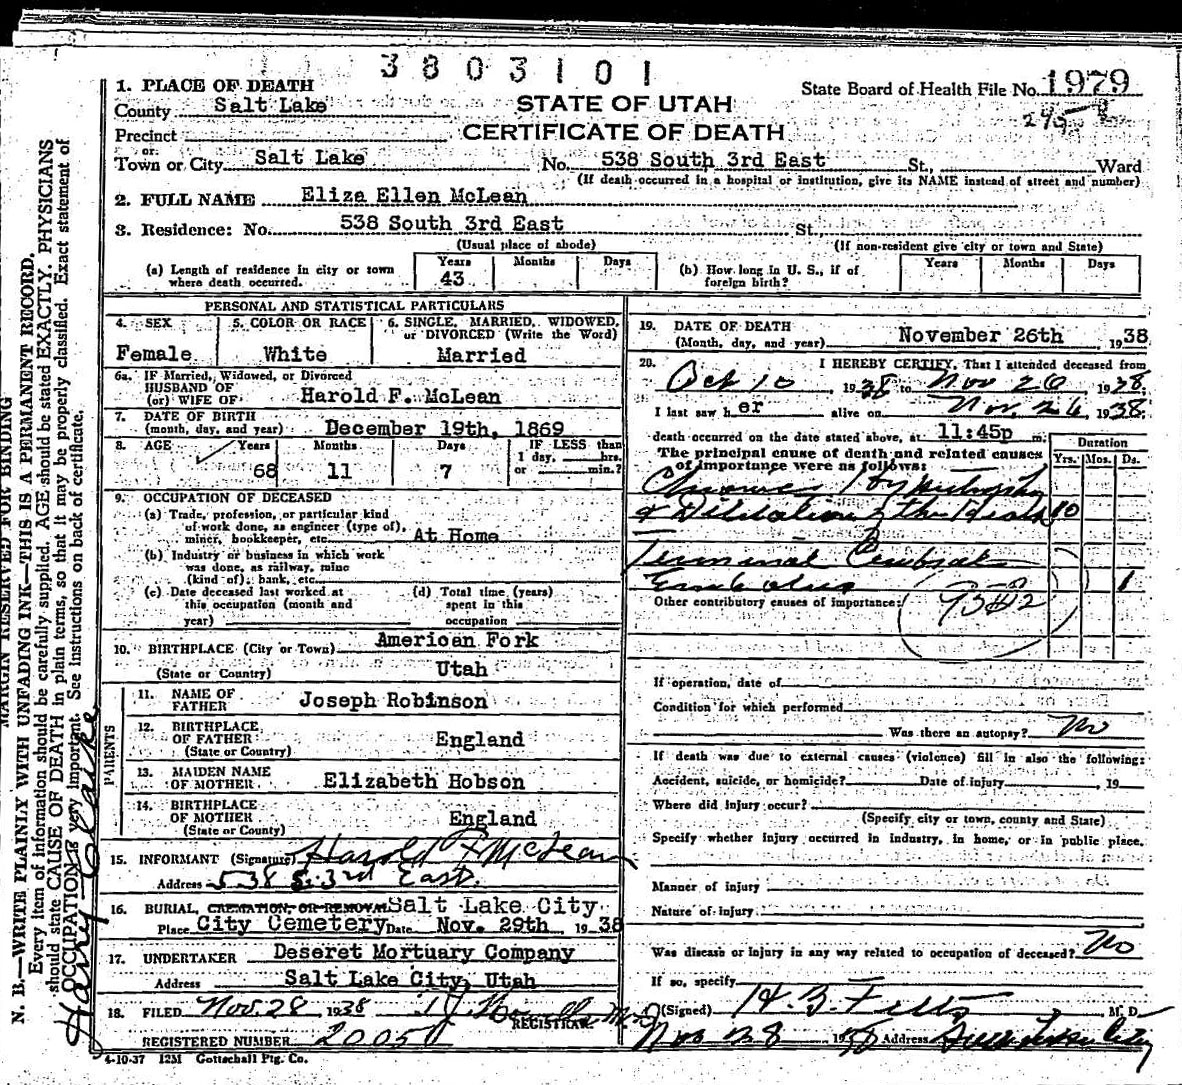 3803101
1. PLACE OF DEATH
State Board of Health File No. 1979
County Salt Lake
STATE OF UTAH
CERTIFICATE OF DEATH
Precinct
or
Town or City Salt Lake No. 538 South 3rd East St, Ward
(If death occurred in a hospital or institution, give its NAME instead of street and number)
2. FULL NAME Eliza Ellen McLean
3. Residence: No. 538 South 3rd East St,
(Usual place of abode) (If non-resident give city or town and State)
(a) Length of residence in city or town where death occurred. Years 43 Months Days
(b) How long in U. S., if of foreign birth? Years Months Days
PERSONAL AND STATISTICAL PARTICULARS
4. SEX Female
5. COLOR OR RACE White
6. SINGLE, MARRIED, WIDOWED, or DIVORCED (Write the Word) Married
6a. IF Married, Widowed, or Divorced
HUSBAND OF
(or) WIFE OF Harold F. McLean
7. DATE OF BIRTH
(month, day, and year) December 19th, 1869
8. AGE Years 68 Months 11 Days 7 IF LESS than 1 day, hrs. or min.?
9. OCCUPATION OF DECEASED
(a) Trade, profession, or particular kind
of work done, as engineer (type of),
miner, bookkeeper, etc. At Home
(b) Industry or business in which work
was done, as railway, mine
(kind of), bank, etc.
(c) Date deceased last worked at
this occupation (month and
year)
(d) Total time (years)
spent in this
occupation
10. BIRTHPLACE (City or Town) American Fork
(State or Country) Utah
PARENTS
11. NAME OF
FATHER Joseph Robinson
12. BIRTHPLACE
OF FATHER England
(State or Country)
13. MAIDEN NAME
OF MOTHER Elizabeth Hobson
14. BIRTHPLACE
OF MOTHER England
(State or County)
15. INFORMANT (Signature) Harold F McLean
Address 538 S. 3rd East.
16. BURIAL, CREMATION, OR REMOVAL Salt Lake City
Place City Cemetery Date Nov. 29th, 1938
17. UNDERTAKER Deseret Mortuary Company
Address Salt Lake City, Utah
18. FILED Nov. 28 1938
REGISTRAR
REGISTERED NUMBER 20050
4-10-37 12M Gottschall Ptg. Co.
19. DATE OF DEATH
(Month, day, and year) November 26th, 1938
20. I HEREBY CERTIFY, That I attended deceased from
Oct 10 1938 to Nov 26 1938.
I last saw her alive on Nov. 26, 1938.
death occurred on the date stated above, at 11:45p m.
Duration
The principal cause of death and related causes Yrs. Mos. Ds.
of importance were as follows:
Chronic Hypertrophy
& Dilatation of the Heart 10
Terminal Cerebral
Embolus 1
Other contributory causes of importance:
If operation, date of
Condition for which performed
Was there an autopsy? No
If death was due to external causes (violence) fill in also the following:
Accident, suicide, or homicide? Date of injury , 19
Where did injury occur?
(Specify city or town, county and State)
Specify whether injury occurred in industry, in home, or in public place.
Manner of injury
Nature of injury
Was disease or injury in any way related to occupation of deceased? No
If so, specify
(Signed) M. D.
Nov 28 1938 Address
MARGIN RESERVED FOR BINDING
N. B.—WRITE PLAINLY WITH UNFADING INK—THIS IS A PERMANENT RECORD.
Every item of information should be carefully supplied. AGE should be stated EXACTLY. PHYSICIANS
should state CAUSE OF DEATH in plain terms, so that it may be properly classified. Exact statement of
OCCUPATION is very important. See instructions on back of certificate.
Harvey Clarke